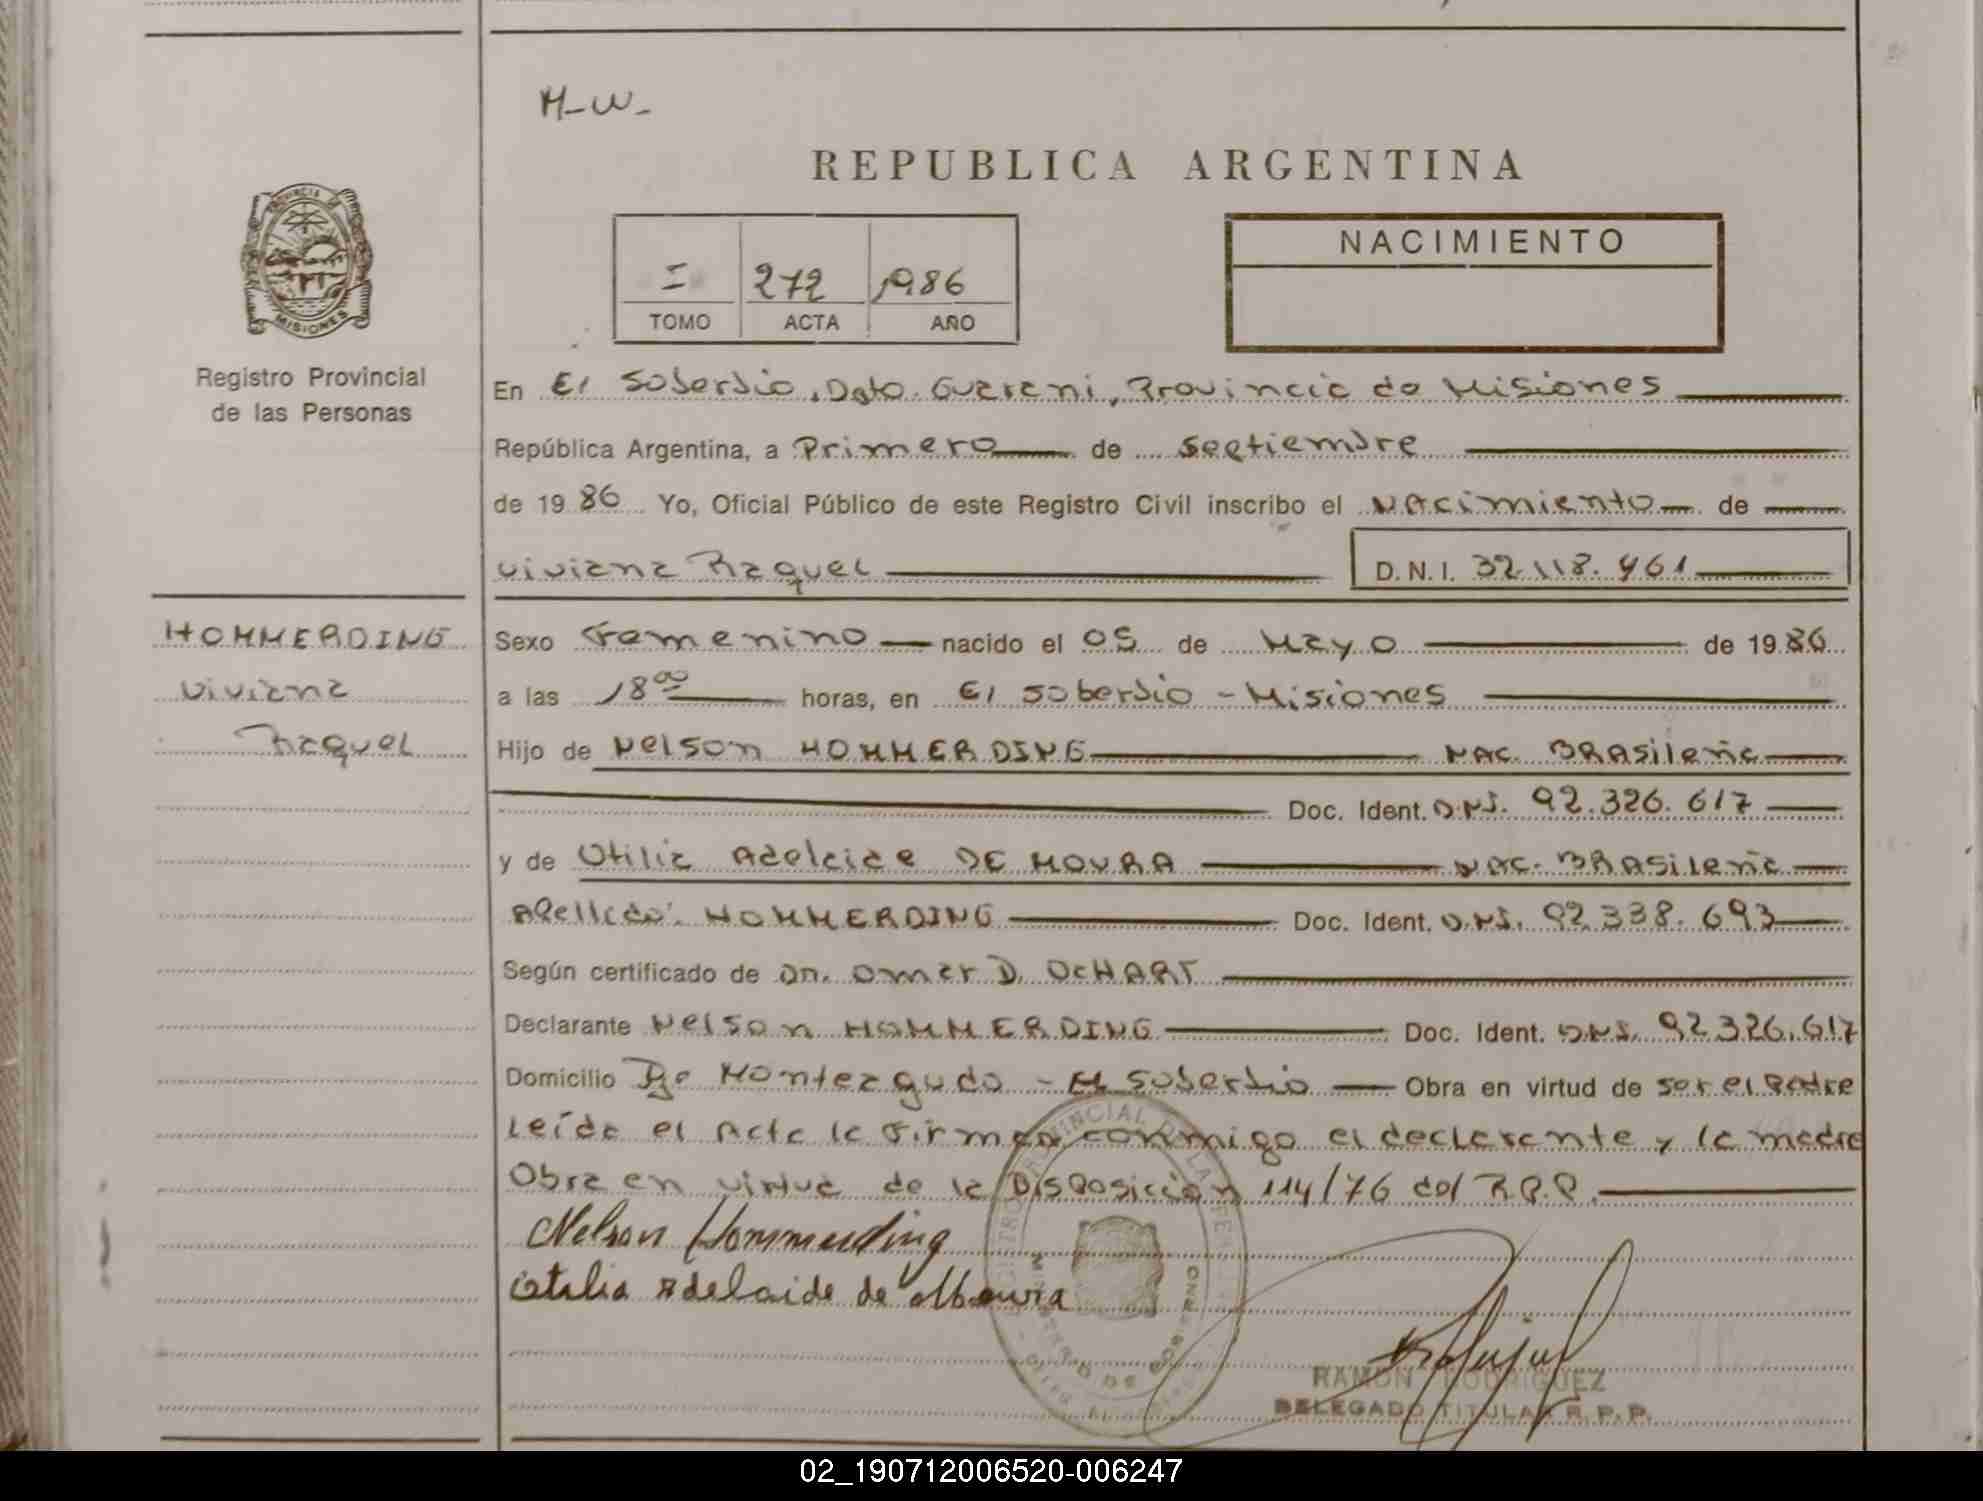 M-W-
REPUBLICA ARGENTINA
I 272 1986
TOMO ACTA AÑO
NACIMIENTO
PROVINCIA DE
MISIONES
Registro Provincial
de las Personas
En El Soberbio, Dpto. Guarani, Provincia de Misiones
República Argentina, a Primero de septiembre
de 1986 Yo, Oficial Público de este Registro Civil inscribo el Nacimiento de
Viviana Raquel D.N.I. 32.118.461
HOMMERDING
Viviana
Raquel
Sexo Femenino nacido el 05 de Mayo de 1986
a las 18 00 horas, en El Soberbio - Misiones
Hijo de Nelson HOMMERDING NAC. BRASileña
Doc. Ident. D.N.I. 92.326.617
y de Otilia Adelaide DE MOURA NAC. BRASileña
Apellido: HOMMERDING Doc. Ident. D.N.I. 92.338.693
Según certificado de DR. Omar D. OCHART
Declarante Nelson HOMMERDING Doc. Ident. D.N.I. 92.326.617
Domicilio Pje Monteagudo - El Soberbio Obra en virtud de ser el Padre
Leída el Acta la Firman conmigo el declarante y la madre
Obra en virtud de la Disposición 114/76 del R.P.P.
Nelson Hommerding
Otilia Adelaide de Moura
RAMON RODRIGUEZ
DELEGADO TITULAR R.P.P.
02_190712006520-006247